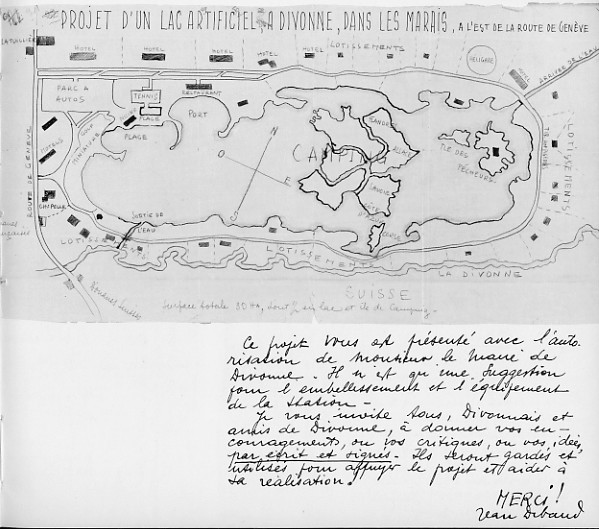 PROJET D'UN LAC ARTIFICIEL, A DIVONNE, DANS LES MARAIS, A L'EST DE LA ROUTE DE GENÈVE
HOTEL
HOTEL
HOTEL
HOTEL
HOTEL
LOTISSEMENTS
HELIGARE
HOTEL
ARRIVEE DE L'EAU
PARC A AUTOS
TENNIS
RESTAURANT
PORT
PLAGE
PLAGE
GOLF MINIATURE
HOTELS
ROUTE DE GENEVE
CHAPELLE
CAMPING
N
O
E
S
SAVOIE
ILE DES PÊCHEURS
LOTISSEMENTS
SORTIE DE L'EAU
LOTISSEMENTS
LOTISSEMENTS
LA DIVONNE
SUISSE
Douanes Suisses
Surface totale 80 Ha, dont
Ce projet vous est présenté avec l'auto-
risation de Monsieur le Maire de
Divonne. Il n'est qu'une suggestion
pour l'embellissement et l'équipement
de la Station -
Je vous invite tous, Divonnais et
amis de Divonne, à donner vos en-
couragements, ou vos critiques, ou vos idées
par écrit et signés. Ils seront gardés et
utilisés pour appuyer le projet et aider à
sa réalisation.
MERCI!
Jean Dibaud